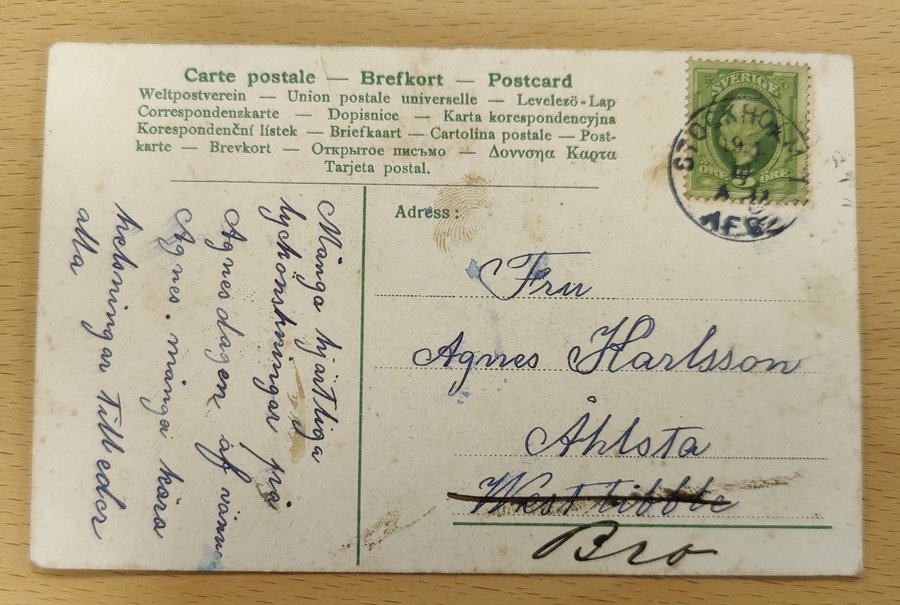 Carte postale — Brefkort — Postcard
Weltpostverein — Union postale universelle — Levelező-Lap
Correspondenzkarte — Dopisnice — Karta korespondencyjna
Korespondenční lístek — Briefkaart — Cartolina postale — Post-
karte — Brevkort — Открытое письмо — Δοννσηα Καρτα
Tarjeta postal.
SVERIGE
5
ÖRE ÖRE
STOCKHOLM
Adress:
Fru
Agnes Karlsson
Åhlsta
West tibble
Bro
Många hjärtliga
lyckönskningar på
Agnesdagen af vännen
Agnes. många kära
helsningar till eder
alla